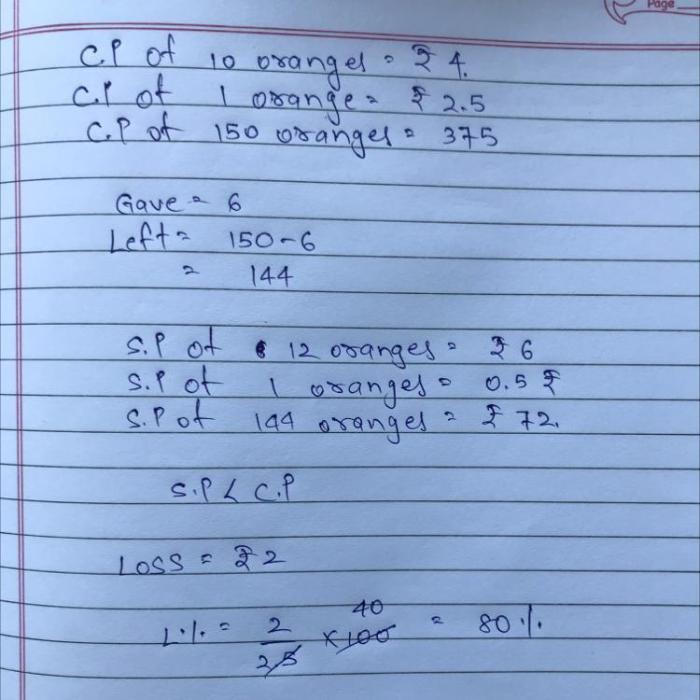 Page
C.P of 10 oranges = ₹ 4.
C.P of 1 orange = ₹ 2.5
C.P of 150 oranges = 375
Gave = 6
Left = 150-6
= 144
S.P of 12 oranges = ₹ 6
S.P of 1 oranges = 0.5 ₹
S.P of 144 oranges = ₹ 72.
S.P < C.P
Loss = ₹ 2
L.%. = 2/2.5 × 100 40 = 80 %.